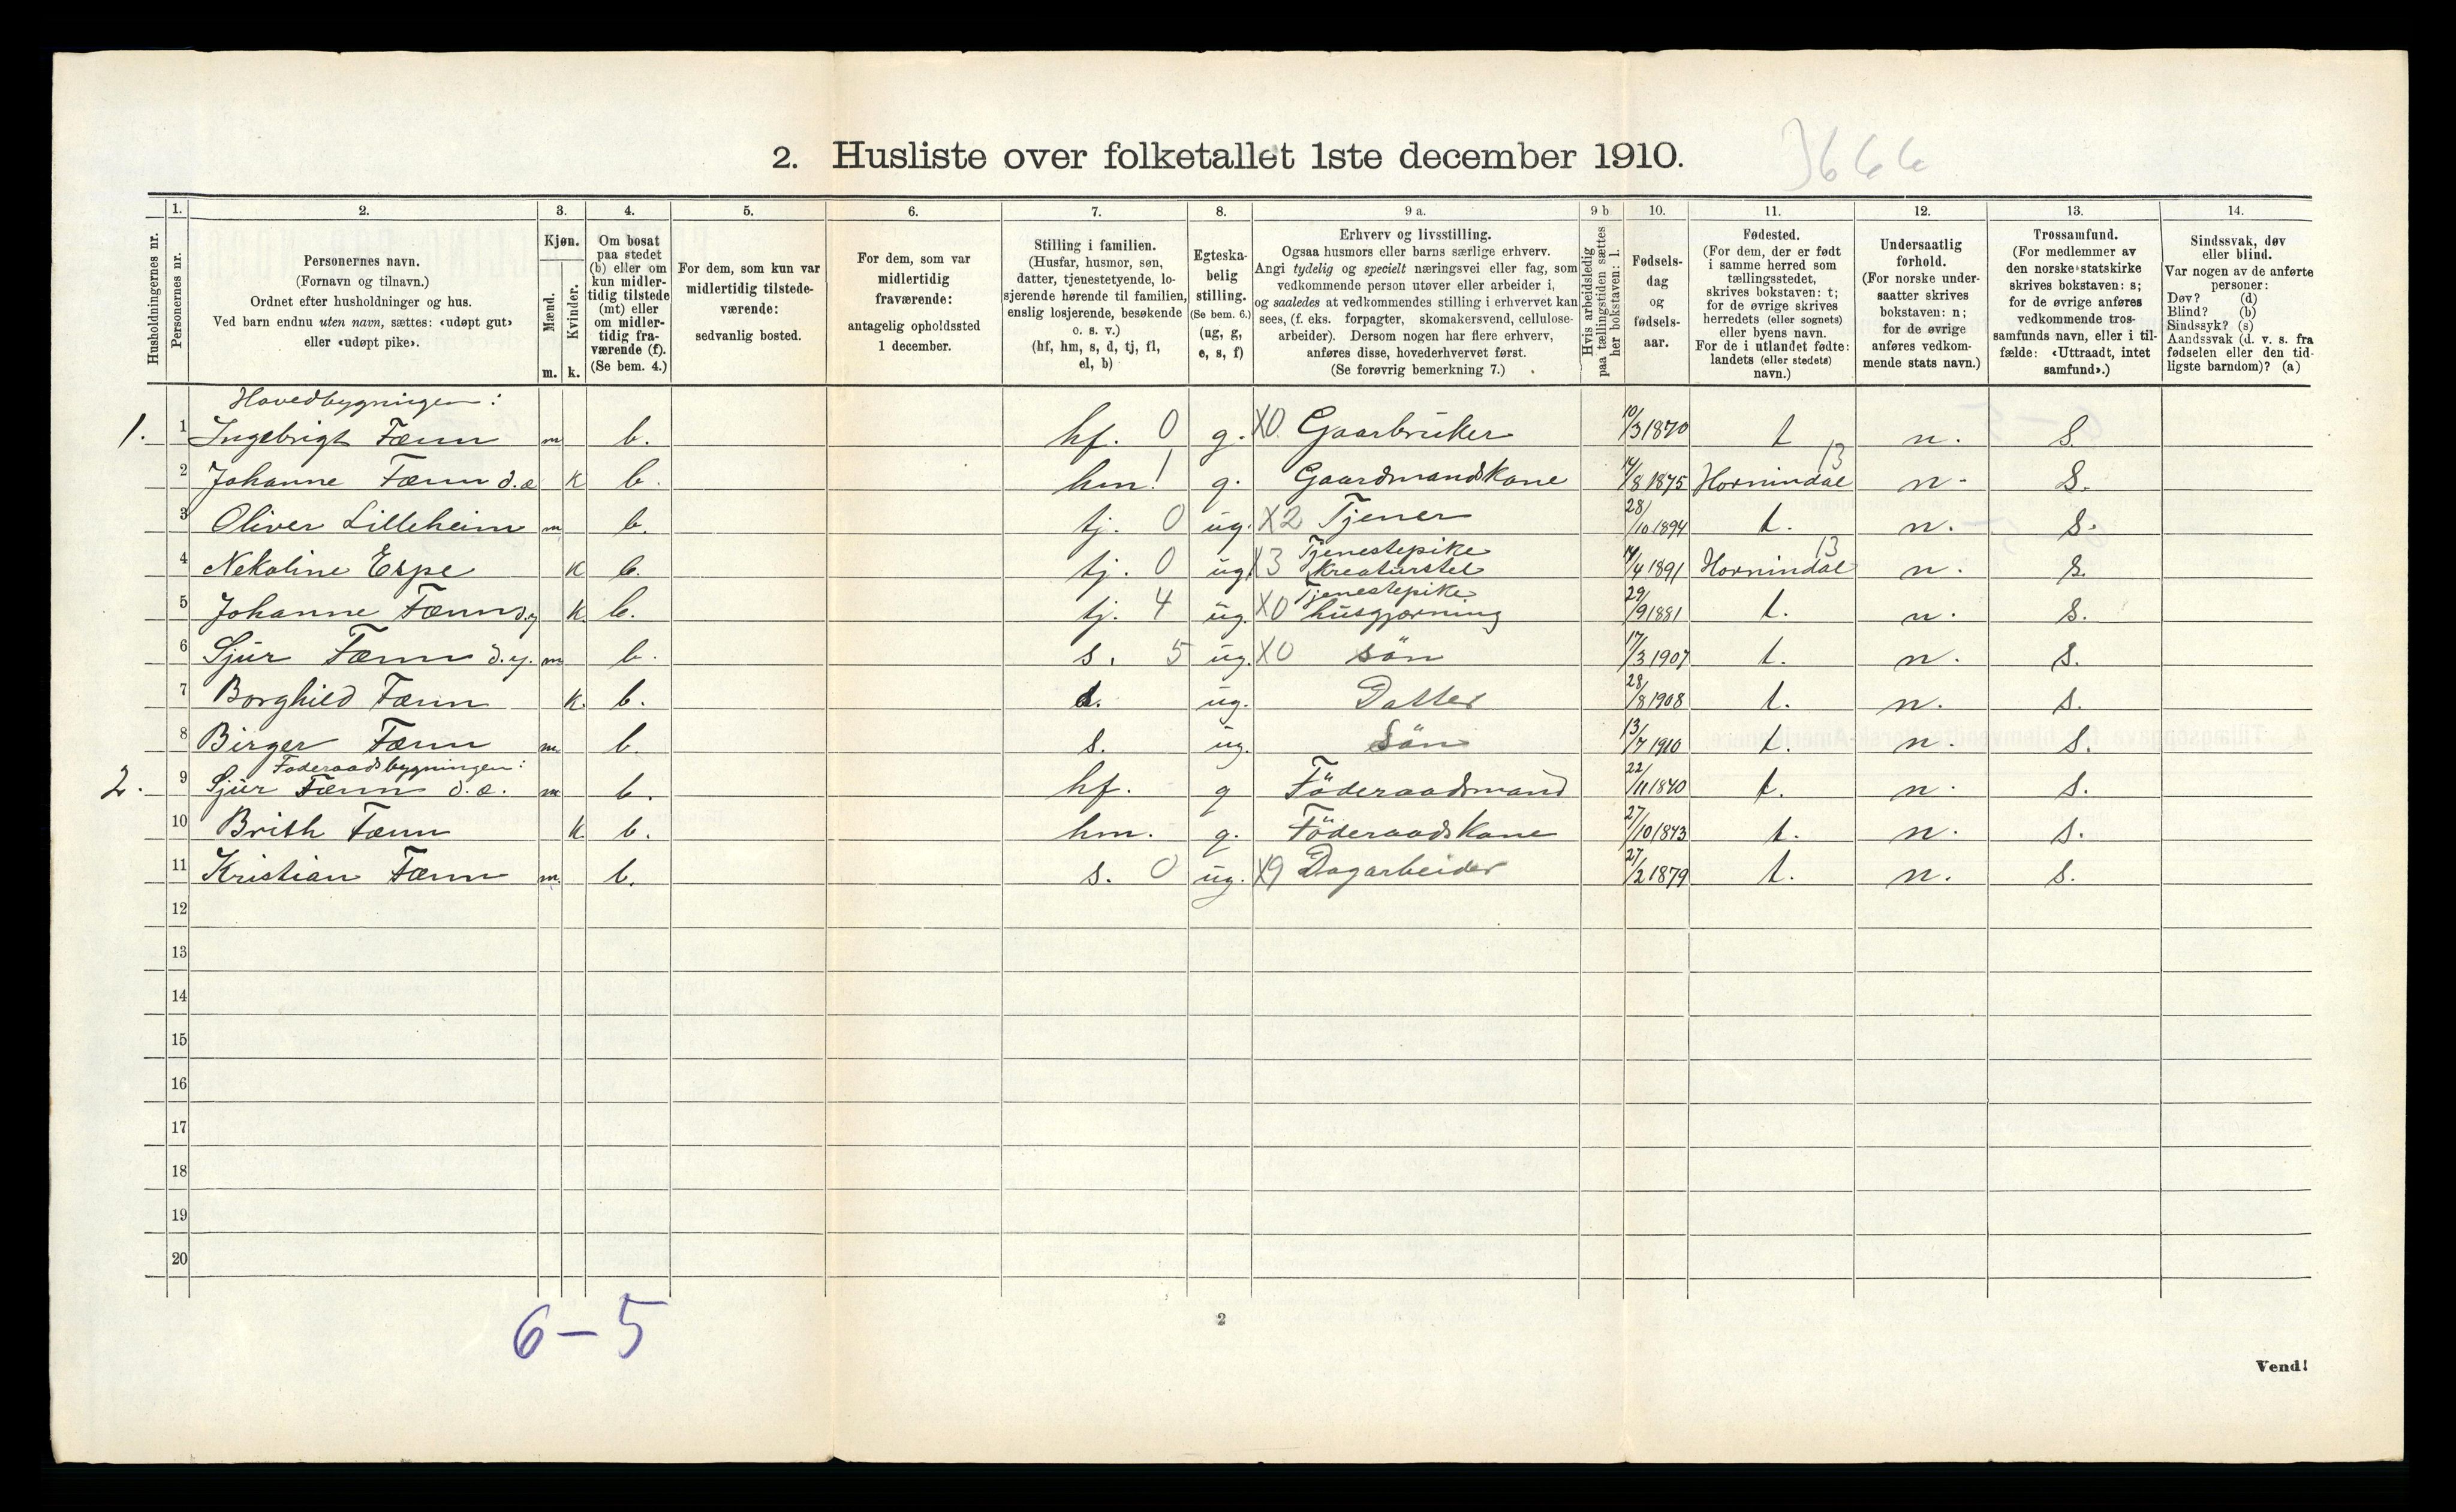 2. Husliste over folketallet 1ste december 1910.
3666
1. 2. 3. 4. 5. 6. 7. 8. 9 a. 9 b 10. 11. 12. 13. 14.
Husholdningernes nr.
Personernes nr.
Personernes navn.
(Fornavn og tilnavn.)
Ordnet efter husholdninger og hus.
Ved barn endnu uten navn, sættes: «udøpt gut»
eller «udøpt pike».
Kjøn.
Mænd.
Kvinder.
m. k.
Om bosat
paa stedet
(b) eller om
kun midler-
tidig tilstede
(mt) eller
om midler-
tidig fra-
værende (f).
(Se bem. 4.)
For dem, som kun var
midlertidig tilstede-
værende:
sedvanlig bosted.
For dem, som var
midlertidig
fraværende:
antagelig opholdssted
1 december.
Stilling i familien.
(Husfar, husmor, søn,
datter, tjenestetyende, lo-
sjerende hørende til familien,
enslig losjerende, besøkende
o. s. v.)
(hf, hm, s, d, tj, fl,
el, b)
Egteska-
belig
stilling.
(Se bem. 6.)
(ug, g,
e, s, f)
Erhverv og livsstilling.
Ogsaa husmors eller barns særlige erhverv.
Angi tydelig og specielt næringsvei eller fag, som
vedkommende person utøver eller arbeider i,
og saaledes at vedkommendes stilling i erhvervet kan
sees, (f. eks. forpagter, skomakersvend, cellulose-
arbeider). Dersom nogen har flere erhverv,
anføres disse, hovederhvervet først.
(Se forøvrig bemerkning 7.)
Hvis arbeidsledig
paa tællingstiden sættes
her bokstaven: l.
Fødsels-
dag
og
fødsels-
aar.
Fødested.
(For dem, der er født
i samme herred som
tællingsstedet,
skrives bokstaven: t;
for de øvrige skrives
herredets (eller sognets)
eller byens navn.
For de i utlandet fødte:
landets (eller stedets)
navn.)
Undersaatlig
forhold.
(For norske under-
saatter skrives
bokstaven: n;
for de øvrige
anføres vedkom-
mende stats navn.)
Trossamfund.
(For medlemmer av
den norske statskirke
skrives bokstaven: s;
for de øvrige anføres
vedkommende tros-
samfunds navn, eller i til-
fælde: «Uttraadt, intet
samfund».)
Sindssvak, døv
eller blind.
Var nogen av de anførte
personer:
Døv? (d)
Blind? (b)
Sindssyk? (s)
Aandssvak (d. v. s. fra
fødselen eller den tid-
ligste barndom)? (a)
Hovedbygningen:
1. 1 Ingebrigt Tænn m b. hf. 0 g. X0. Gaarbruker 10/3 1870 t n. s.
2 Johanne Tænn d.e k b. hm. 1 g. Gaardmandskone 14/8 1875 Hornindal 13 n. s.
3 Oliver Lilleheim m b. tj. 0 ug. X2 Tjener 28/10 1894 t. n. s.
4 Nekoline Espe k b. tj. 0 ug. X3 Tjenestepike kreaturstel 14/4 1891 Hornindal 13 n. s.
5 Johanne Tænn d.y k. b. tj. 4 ug. X0 Tjenestepike husgjørning 29/9 1881 t. n. s.
6 Sjur Tænn d.y. m b. s. 5 ug. X0 søn 17/3 1907 t. n. s.
7 Borghild Tænn k. b. d. ug. Datter 28/8 1908 t. n. s.
8 Birger Tænn m b. s. ug. Søn 13/7 1910 t. n. s.
Føderaadsbygningen:
2. 9 Sjur Tænn d.e. m b. hf. g Föderaadsmand 22/11 1840 t. n. s.
10 Brith Tænn k b. hm. g. Föderaadskone 27/10 1843 t. n. s.
11 Kristian Tænn m. b. s. 0 ug. X9 Dagarbeider 27/2 1879 t. n. s.
12
13
14
15
16
17
18
19
20
6–5
2
Vend!